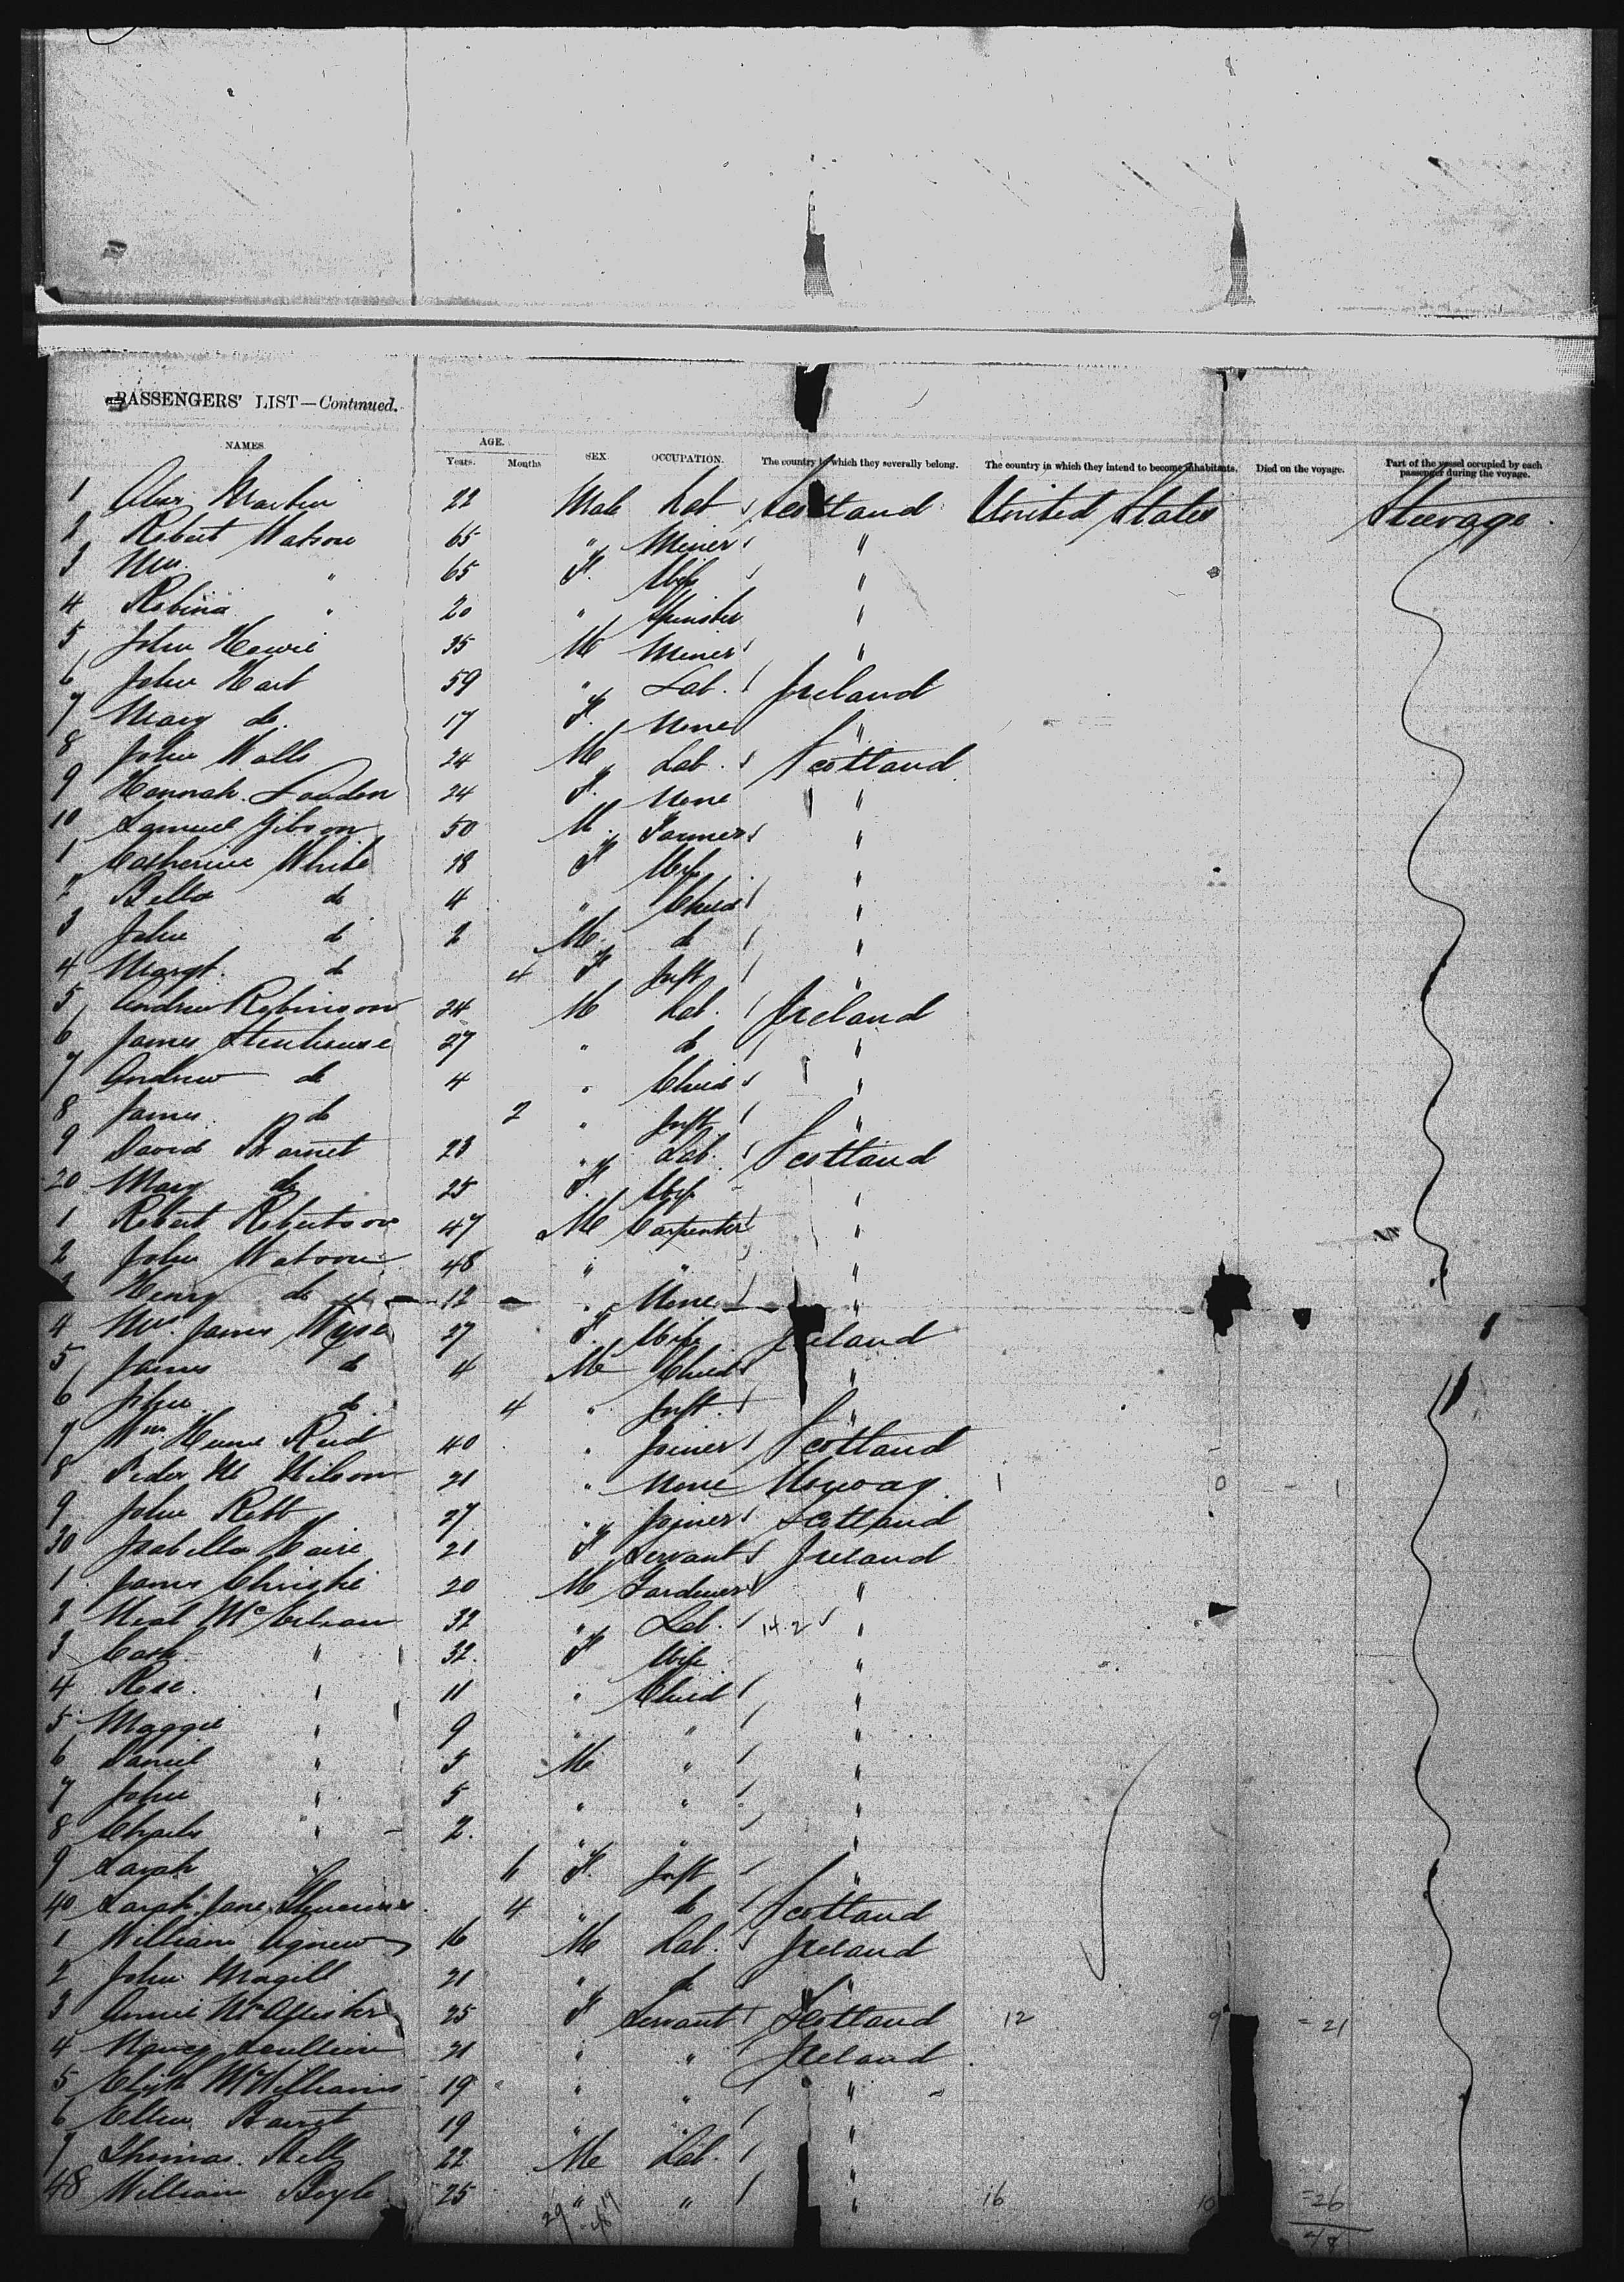 PASSENGERS' LIST—Continued.
NAMES AGE. Years. Months SEX OCCUPATION. The country to which they severally belong. The country in which they intend to become inhabitants. Died on the voyage. Part of the vessel occupied by each passenger during the voyage.
1 Alexr Martin 22 Male Lab Scotland United States Steerage
2 Robert Watson 65 " Miner "
3 Mrs. " 65 F. Wife "
4 Robina " 20 " Spinster "
5 John Howie 35 M Miner "
6 John Hart 59 " Lab. Ireland
7 Mary do. 17 F. None "
8 John Walls 24 M Lab. Scotland
9 Hannah Loudon 24 F. None "
10 Samuel Gibson 50 M. Farmer "
1 Catherine White 28 F Wife "
2 Bella do 4 " Child "
3 John do 2 M do "
4 Margt. do 4 F Inft "
5 Andrew Robinson 24 M Lab. Ireland
6 James Stenhouse 27 " do "
7 Andrew do 4 " Child "
8 James do 2 " Inft "
9 David Barnet 23 " Lab. Scotland
20 Mary do 25 F. Wife "
1 Robert Robertson 47 M Carpenter "
2 John Watson 48 " " "
3 Henry do 12 " None "
4 Mrs. James Wyse 27 F. Wife Ireland
5 James do 4 M Child "
6 John do 4 " Inft. "
7 Wm Hume Reid 40 " Joiner Scotland
8 Peder M Nilson 21 " None Norway 1 0 - 1
9 John Robb 27 " Joiner Scotland
30 Isabella 21 F Servant Ireland
1 James Christie 20 M Gardener "
2 Neal Mc 32 " Lab. 14.2 "
3 Cath. " 32. F Wife "
4 Rose. " 11 " Child "
5 Maggie " 9 " " "
6 Daniel " 5 M " "
7 John " 5 " " "
8 Charles " 2. " " "
9 Sarah " 6 F. Inft "
40 Sarah Jane 4 " do Scotland
1 William Agnew 16 M Lab. Ireland
2 John Magill 21 " do "
3 Annie McAllister 25 F Servant Scotland 12 9 = 21
4 Nancy Scullion 21 " " Ireland
5 Elizth McWilliams 19 " " "
6 Ellen Barret 19 " " "
7 Thomas 22 M Lab. "
48 William Boyle 25 " " " 16 10 = 26
29 19
48 48